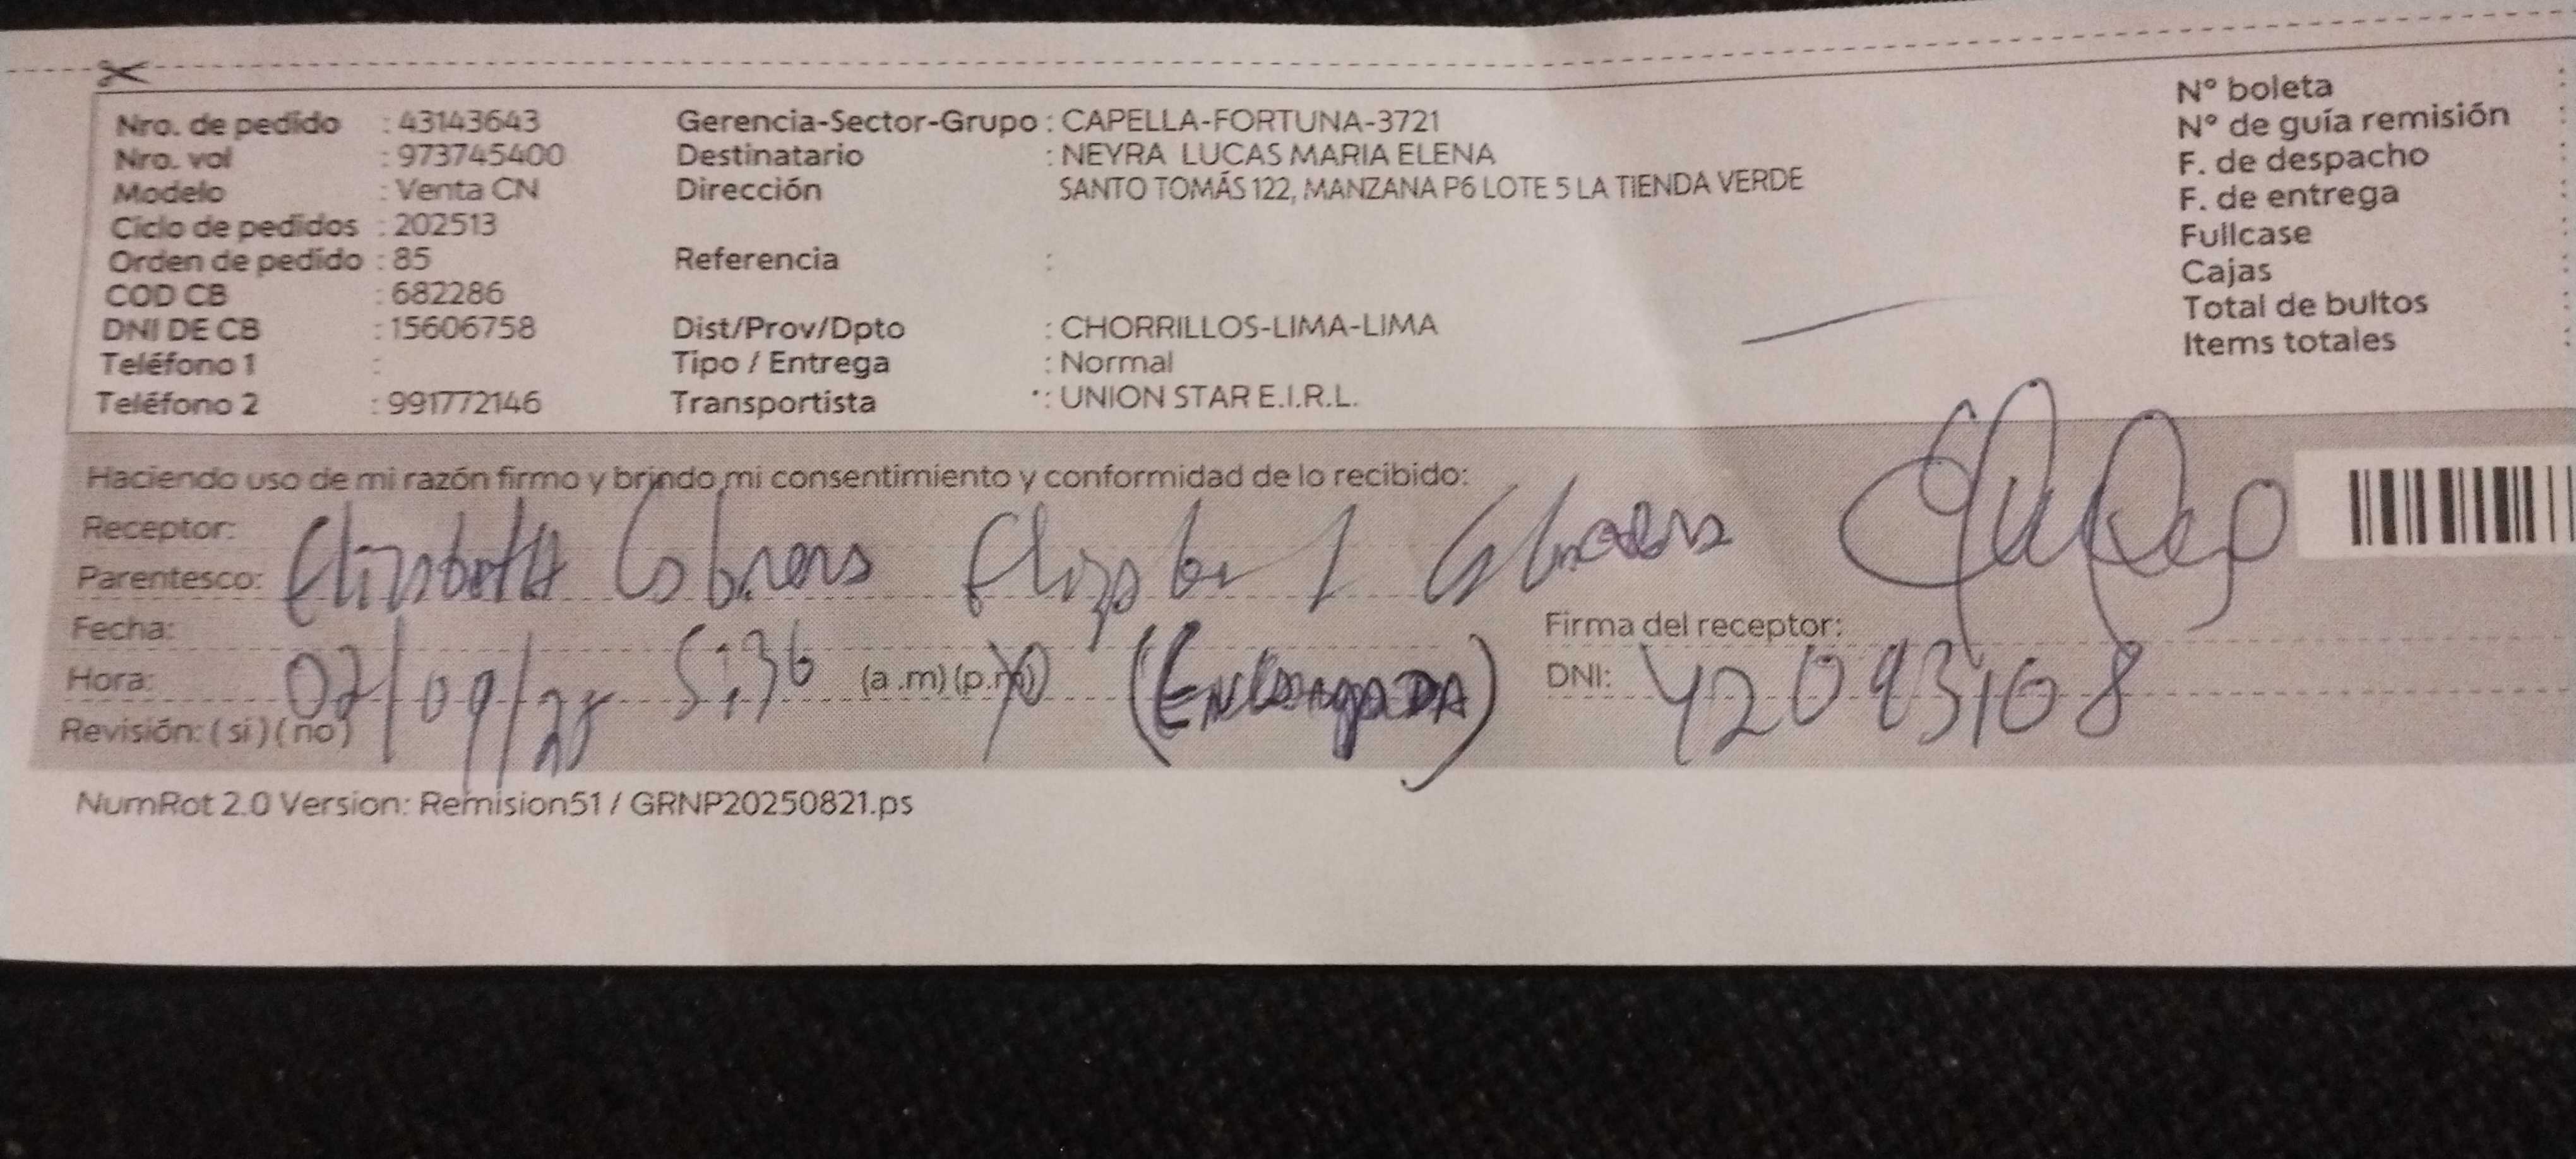 Nro. de pedido : 43143643 Gerencia-Sector-Grupo : CAPELLA-FORTUNA-3721 N° boleta :
Nro. vol : 973745400 Destinatario : NEYRA LUCAS MARIA ELENA N° de guía remisión :
Modelo : Venta CN Dirección SANTO TOMÁS 122, MANZANA P6 LOTE 5 LA TIENDA VERDE F. de despacho :
Ciclo de pedidos : 202513 F. de entrega :
Orden de pedido : 85 Referencia : Fullcase :
COD CB : 682286 Cajas :
DNI DE CB : 15606758 Dist/Prov/Dpto : CHORRILLOS-LIMA-LIMA Total de bultos :
Teléfono 1 : Tipo / Entrega : Normal Items totales :
Teléfono 2 : 991772146 Transportista : UNION STAR E.I.R.L.
Haciendo uso de mi razón firmo y brindo mi consentimiento y conformidad de lo recibido:
Receptor:
Parentesco: Elizabeth Cabrera
Fecha: Firma del receptor:
Hora: 02/09/25 5:36 (a.m) (p.m) (ENCARGADA) DNI: 42093108
Revisión: ( si ) ( no )
NumRot 2.0 Version: Remision51 / GRNP20250821.ps